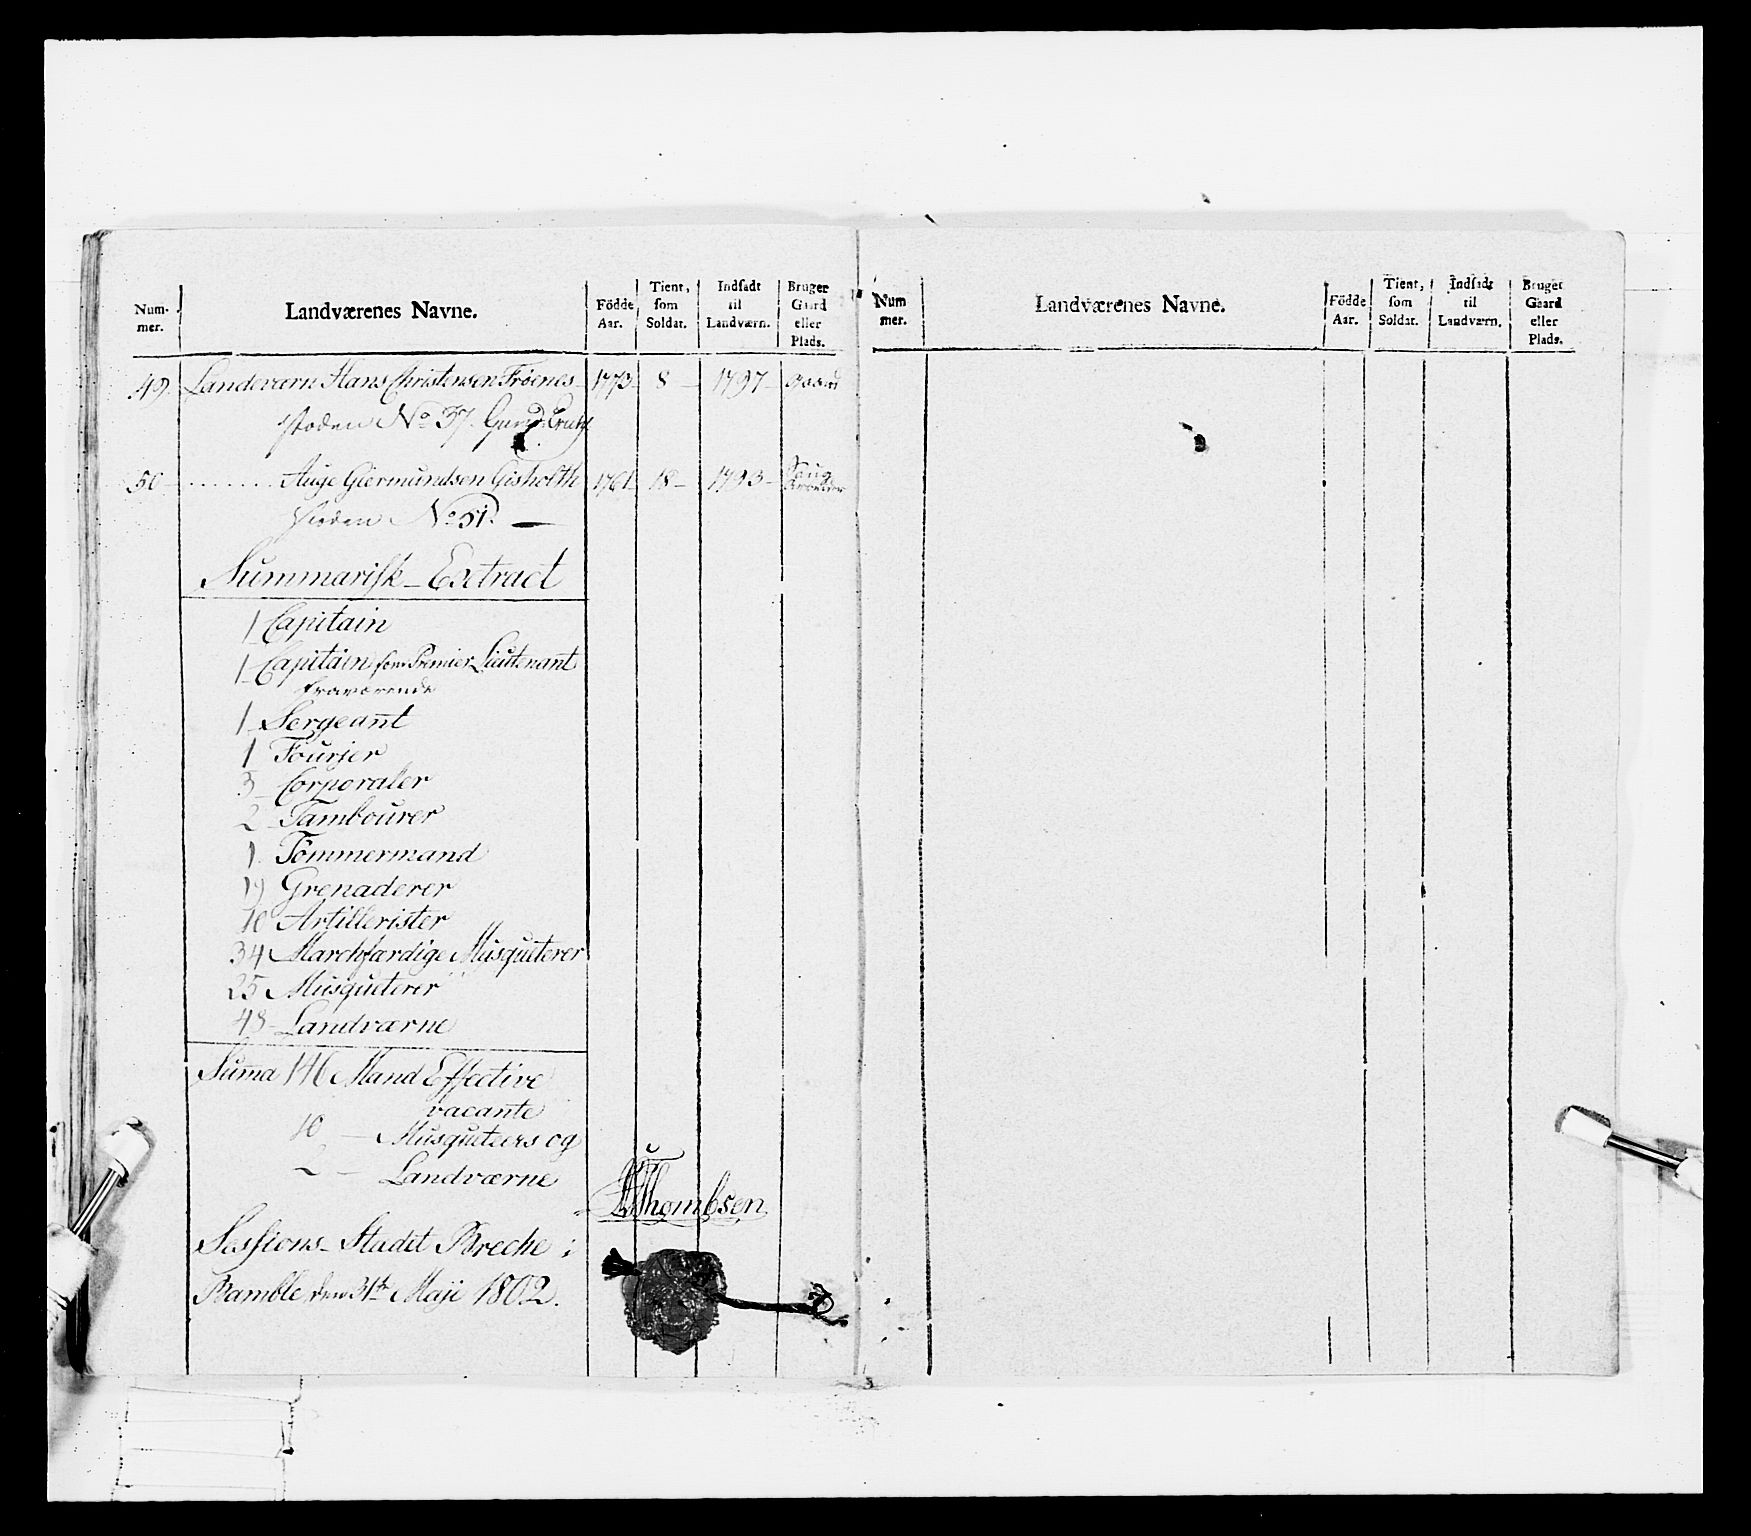 Num-
mer.
Landværenes Navne.
Födde
Aar.
Tient,
som
Soldat.
Indsadt
til
Landværn.
Bruger
Gaard
eller
Plads.
49. Landeværn Hans Christensen Fröenes- 1773- 8 - 1797-
No 37.
50 - ........ Auge Giermundsen Gisholth 1761- 18 - 1793-
No 51. —
Summarisk - Extract
1 Capitain
1 Capitain som Premier Lieutenant
fraværende
1 Sergeant
1 Fourier
3 - Corporaler
2 - Tambourer
1. Tömmermand
19 Grenaderer
10 Artillerister
34 Marchfærdige Musqueterer
25 Musqueterer
48 - Landværne
Suma 146 Mand Effective
vacante
10 — Musqueteers og
2 — Landværne
Thombsen
Sessions- Stadet Breche i
Bamble den 31te Maji 1802.
Num
mer.
Landværenes Navne.
Födde
Aar.
Tient,
som
Soldat.
Indsadt
til
Landværn.
Bruger
Gaard
eller
Plads.